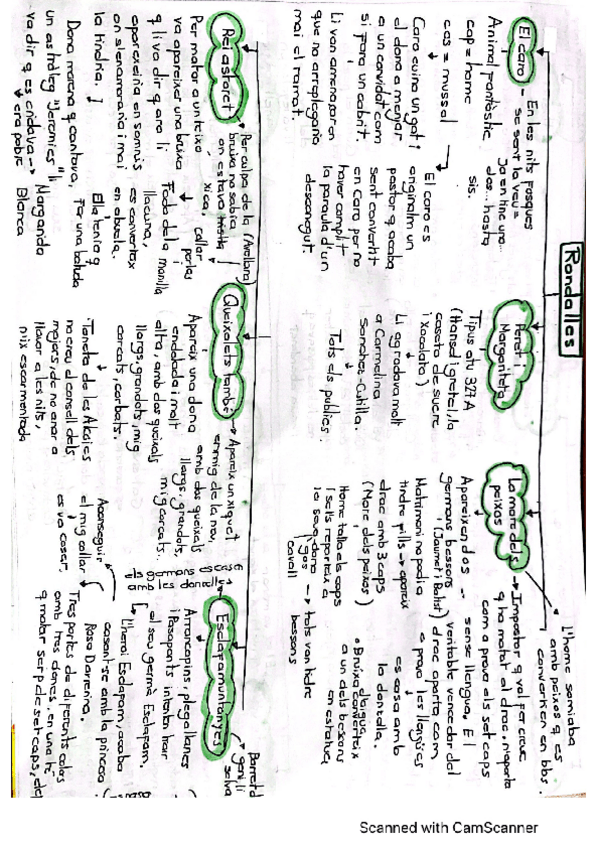 Rondalles
El caro
- En les nits fosques
se sent la veu =
Ja en tinc una...
dos... hasta
sis.
Animal fantàstic
cap = home
cos = mussol
Caro cuina un gat i
el dona a menjar
a un convidat com
si fora un cabrit.
Li van amenaçar en
que no arreplegaria
mai el ramat.
El caro es
originalm un
pastor q acaba
sent convertit
en Caro por no
haver complit
la paraula d'un
desconegut.
Peret i
Margariteta
Tipus atu 327A
(Hansel i gretel, la
caseta de sucre
i xocolata)
Li agradava molt
a Carmelina
Sanchez-Cutilla.
Tots els publics.
La mare dels
peixos
L'home somiaba
amb peixos q es
convertien en bbs.
Impostor q vol fer creure
q ha matat al drac, n'aporta
com a prova els set caps
sense llengua. El
vertable vencedor del
drac aporta com
a prova les llengües
es casa amb
la doncella.
Apareixen dos
germans bessons
(Jaumet i Batist)
Matrimoni no podia
tindre fills → apareix
drac amb 3 caps
(Mare dels peixos)
Home talla els caps
i sels reparteix a
la seva dona → tots van tindre
gos bessons
cavall
• Bruixa converteix
a un dels bessons
en estatua
Rei astoret
Per culpa de la (Avellana)
bruixa no sabria
on estava
xica.
Per matar a un teixo
va apareixer una bruixa
q li va dir q ara li
apareixeria en somnis
on s'enamoraria i mai
la tindria.
Collar
perles
Fada de la manilla
llacuna,
es converteix
en abuela.
Dona morena q cantava,
un astròleg "Jeremies" li
va dir q es cridava → Margarida
era pobre Blanca
Ella tenia q
Queixalets també
→ Apareix un xiquet
enmig de la neu,
amb dos queixals
llargs, grandots,
mig corcats.
Apareix una dona
endolada i molt
alta, amb dos queixals
llargs, grandots, mig
corcats, corbats.
Tracta de les Alcaies
no creu el consell dels
majors, de no anar a
llavar a les nits,
niix escarmentada
Esclafamuntanyes
els germans es casen
amb les doncelles
Arrancapins, plegallanes
i Pasaponts intenten trair
al seu germà Esclafam.
L'heroi Esclafam, acaba
casant-se amb la princesa
Rosa Darrerina.
Aconseguir
el mig collar
es va coser.
Tres partes de diferents colors
amb tres dones, en una té
q matar serp de set caps, de
Scanned with CamScanner